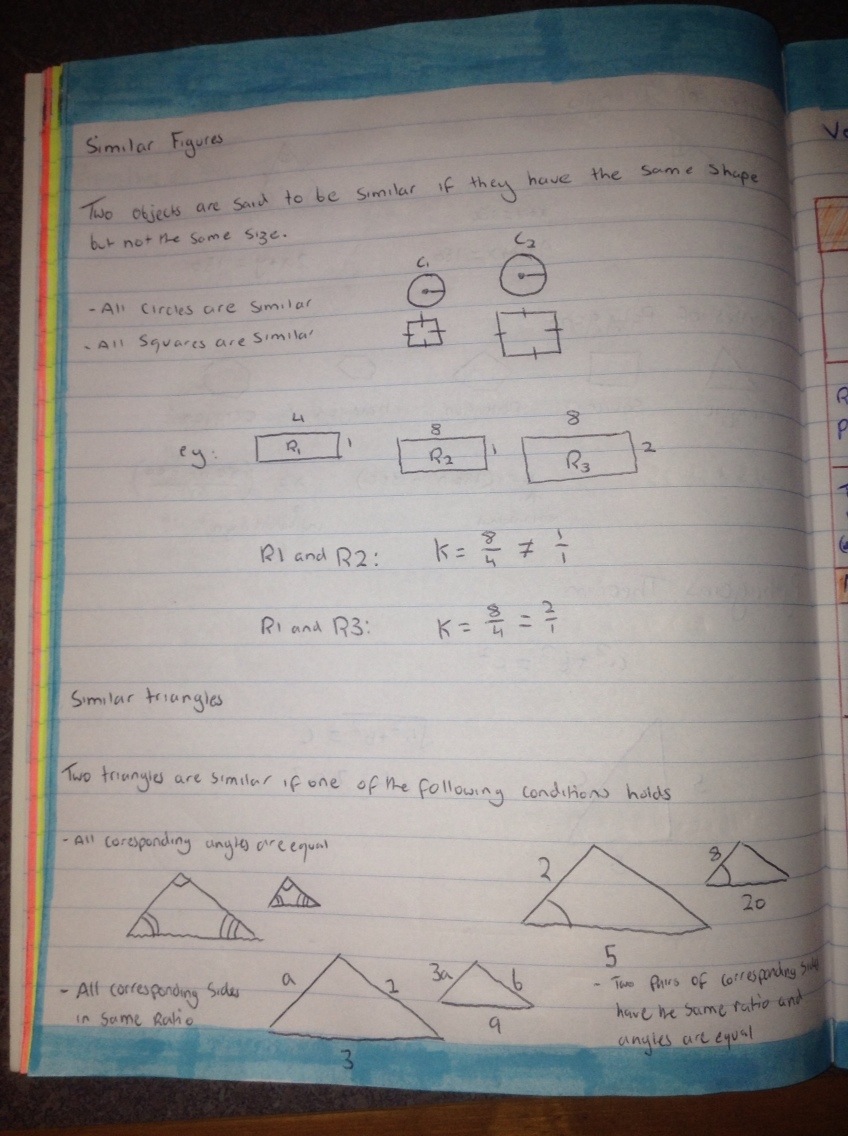 Similar Figures
Two objects are said to be similar if they have the same shape
but not the same size.
C1
C2
- All Circles are Similar
- All Squares are Similar
eg:
4
R1
1
8
R2
1
8
R3
2
R1 and R2: K = 8/4 ≠ 1/1
R1 and R3: K = 8/4 = 2/1
Similar triangles
Two triangles are similar if one of the following conditions holds
- All coresponding angles are equal
2
5
8
20
- All corresponding sides
in same Ratio
a
2
3
3a
6
9
- Two Pairs of corresponding sides
have he same ratio and
angles are equal